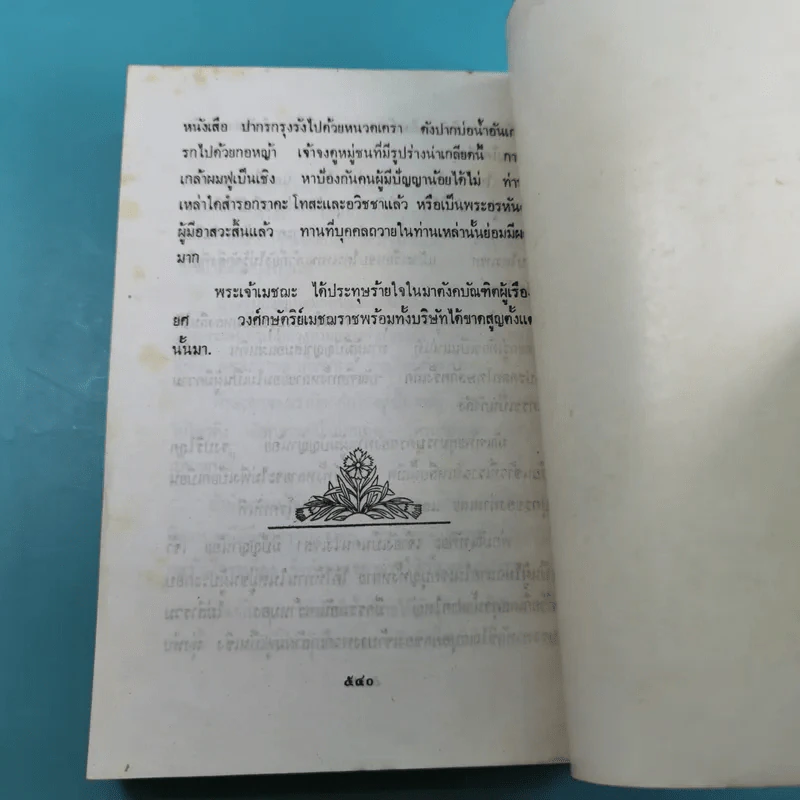 หนังเสือ ปากรกรุงรังไปด้วยหนวดเครา ดังปากบ่อน้ำอัน
รกไปด้วยกอหญ้า เจ้าจงดูหมู่ชนที่มีรูปร่างน่าเกลียดนี้
เกล้าผมฟูเป็นเชิง หาป้องกันคนผู้มีปัญญาน้อยได้ไม่
เหล่าใดสำรอกราคะ โทสะและอวิชชาแล้ว หรือเป็นพระอรหัน
ผู้มีอาสวะสิ้นแล้ว ทานที่บุคคลถวายในท่านเหล่านั้นย่อมมี
มาก
พระเจ้าเมชฌะ ได้ประทุษร้ายใจในมาตังคบัณฑิตผู้เรือง
ยศ วงศ์กษัตริย์เมชฌราชพร้อมทั้งบริษัทได้ขาดสูญตั้งแต่
นั้นมา.
๕๔๐